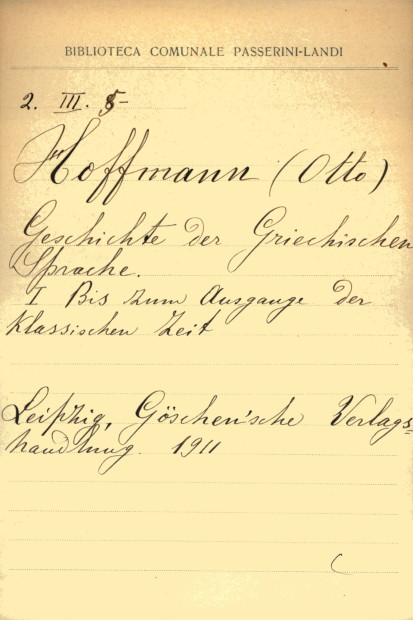 BIBLIOTECA COMUNALE PASSERINI-LANDI
2. III. 8-
Hoffmann (Otto)
Geschichte der Griechischen
Sprache.
I Bis zum Ausgange der
Klassischen Zeit
Leipzig, Göschen'sche Verlags-
handlung. 1911